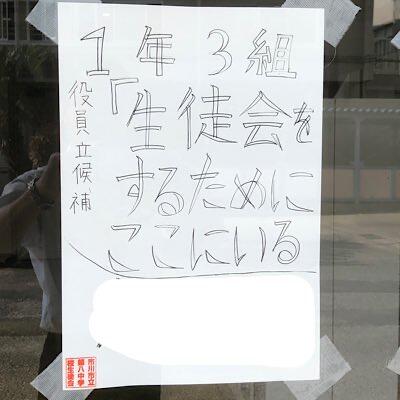 1年3組
役員立候補
「生徒会を
するために
ここにいる
市川市立
第八中学
校生徒会